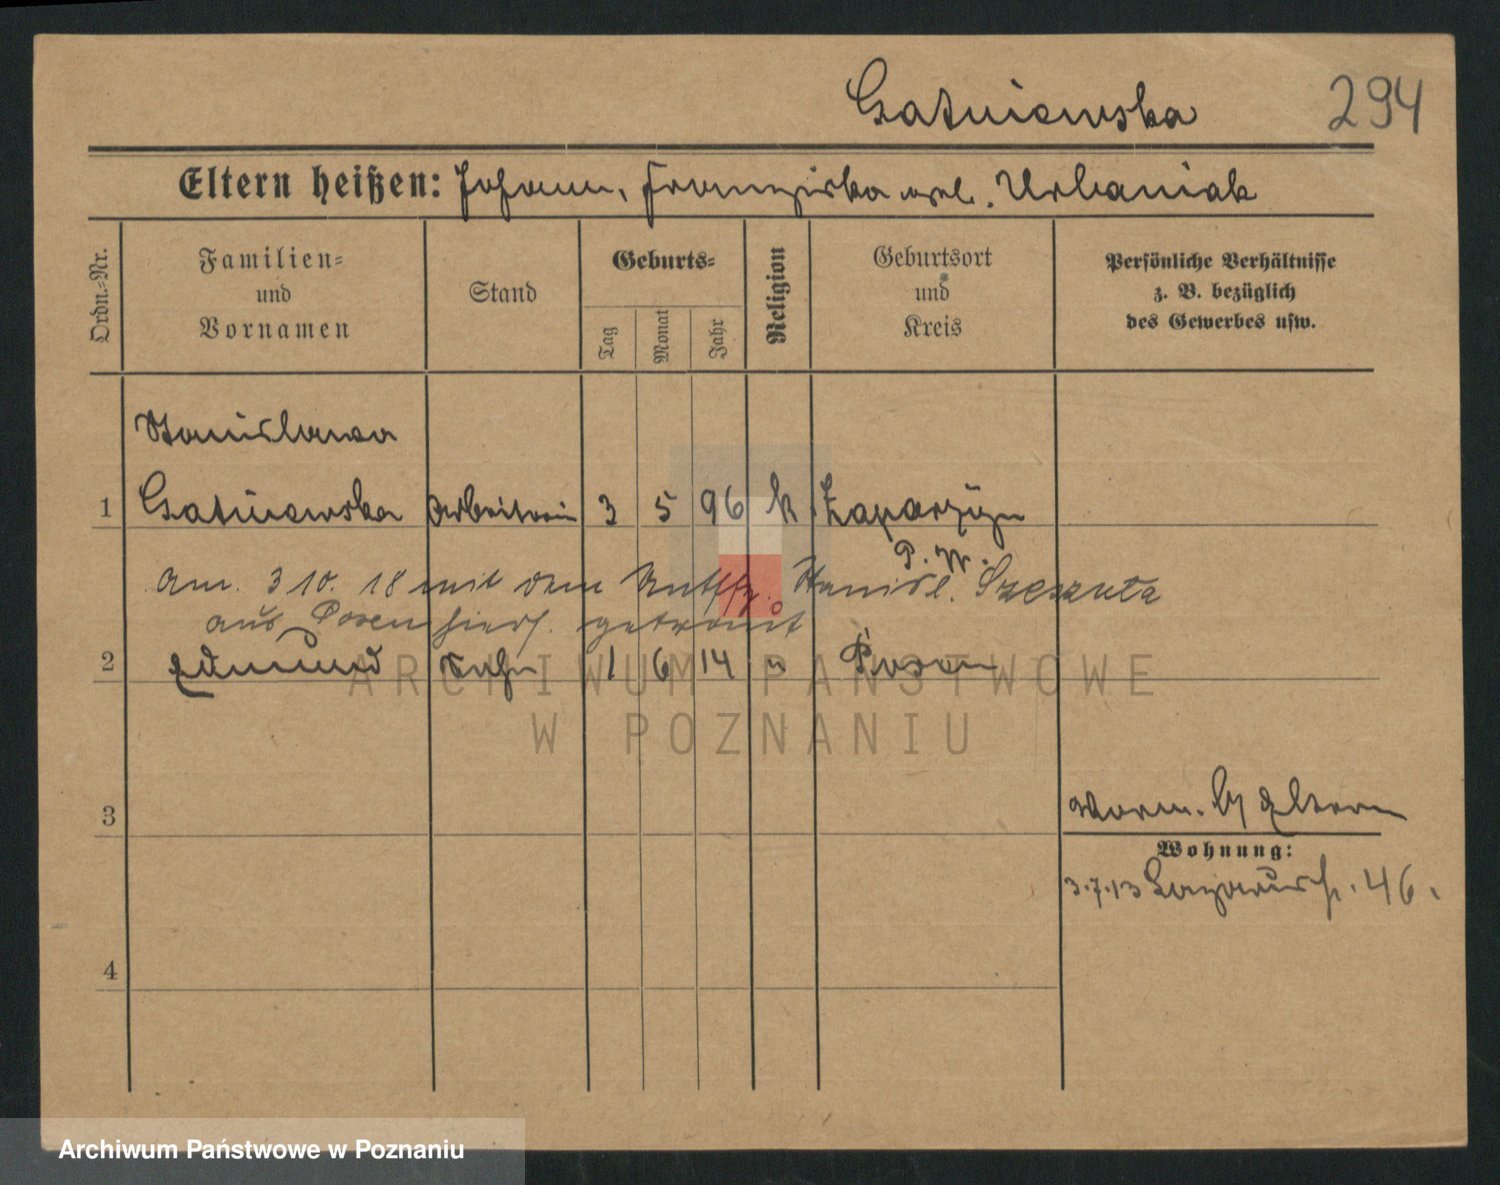 Gatniewska 294
Eltern heißen: Johann, Franziska geb. Urbaniak
Ordn.-Nr.
Familien-
und
Vornamen
Stand
Geburts-
Tag
Monat
Jahr
Religion
Geburtsort
und
Kreis
Persönliche Verhältnisse
z. B. bezüglich
des Gewerbes usw.
Stanislawa
1 Gatniewska Arbeiterin 3 5 96 k
P. W.
am 3 10. 18 mit dem Stanisl. Szeszuta
aus Posen hiers. getraut
2 Edmund Sohn 1 6 14 " Posen
3
vorm. b/ Eltern
Wohnung:
3.7.13 Lazarusstr. 46.
4
ARCHIWUM PAŃSTWOWE
W POZNANIU
Archiwum Państwowe w Poznaniu